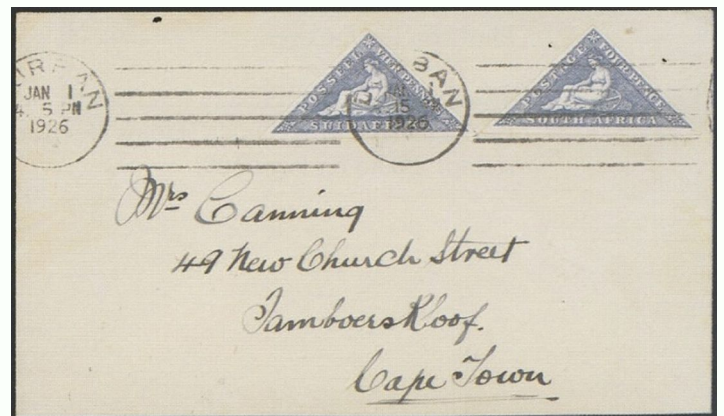 DURBAN
JAN 1
4. 5 PM
1926
POSSEËL VIER PENNIE
SUIDAFRIKA
BAN
15
1926
POSTAGE FOUR PENCE
SOUTH AFRICA
Mrs Canning
49 New Church Street
Tamboers Kloof.
Cape Town